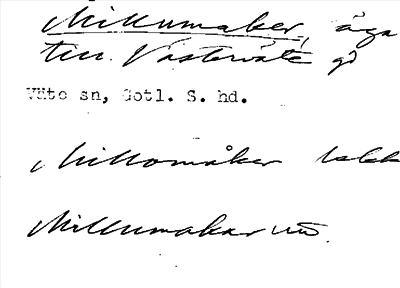 Millumåker, äga
till Västerväte gd
Väte sn, Gotl. S. hd.
Millomåker
Millumakar